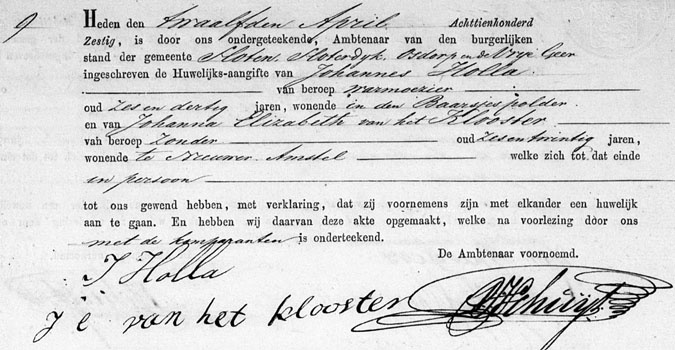 9
Heden den twaalfden April Achttienhonderd
Zestig, is door ons ondergeteekende, Ambtenaar van den burgerlijken
stand der gemeente Sloten, Sloterdyk, Osdorp en de Vrye Geer
ingeschreven de Huwelijks-aangifte van Johannes Holla
van beroep warmoezier
oud zes en dertig jaren, wonende in den Baarsjespolder
en van Johanna Elizabeth van het Klooster
van beroep Zonder oud zes en twintig jaren,
wonende te Nieuwer Amstel welke zich tot dat einde
in persoon
tot ons gewend hebben, met verklaring, dat zij voornemens zijn met elkander een huwelijk
aan te gaan. En hebben wij daarvan deze akte opgemaakt, welke na voorlezing door ons
met de komparanten is onderteekend.
De Ambtenaar voornoemd.
J Holla
J e van het klooster